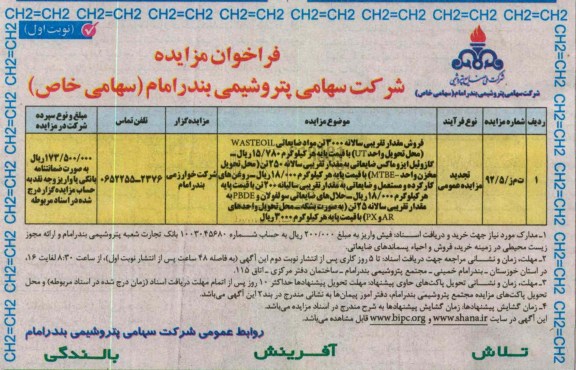 CH2=CH2 CH2=CH2 CH2=CH2 CH2=CH2 CH2=CH2 CH2=CH2 CH2=CH2 CH2=CH2
(نوبت اول)
فراخوان مزایده
شرکت سهامی پتروشیمی بندرامام (سهامی خاص)
شرکت ملی صنایع پتروشیمی
شرکت سهامی پتروشیمی بندرامام (سهامی خاص)
ردیف
شماره مزایده
نوع فرآیند
موضوع مزایده
مزایده گزار
تلفن تماس
مبلغ و نوع سپرده
شرکت در مزایده
۱
ت‌مز/۹۲/۵
تجدید
مزایده عمومی
فروش مقدار تقریبی سالانه ۳۰۰۰ تن مواد ضایعاتی WASTEOIL
(محل تحویل واحد UT) با قیمت پایه هر کیلوگرم ۱۵/۷۸۰ ریال ــ
گازوئیل ایزوماکس ضایعاتی به مقدار تقریبی سالانه ۲۵۰ تن (محل تحویل
مخزن واحد MTBE) با قیمت پایه هر کیلوگرم ۱۸/۰۰۰ ریال ــ روغن های
کارکرده و مستعمل و ضایعاتی به مقدار تقریبی سالیانه ۲۰۰ تن با قیمت پایه
هر کیلوگرم ۱۸/۰۰۰ ریال ــ حلال های ضایعاتی سولفولان و PBDE به
مقدار تقریبی سالانه ۲۵ تن (به صورت بشکه ــ محل تحویل واحدهای
AR و PX) با قیمت پایه هر کیلوگرم ۳۰۰۰ ریال
شرکت خوارزمی
بندرامام
۰۶۵۲۲۵۵ــ۲۳۷۶
۱۷۳/۵۰۰/۰۰۰ ریال
به صورت ضمانتنامه
بانکی یا واریز وجه نقد به
حساب مزایده گزار درج
شده در اسناد مربوطه
۱ـ مدارک مورد نیاز جهت خرید و دریافت اسناد: فیش واریز به مبلغ ۲۰۰/۰۰۰ ریال به حساب شماره ۱۰۰۳۰۴۵۶۸۰ بانک تجارت شعبه پتروشیمی بندرامام و ارائه مجوز
زیست محیطی در زمینه خرید، فروش و احیاء پسماندهای ضایعاتی.
۲ـ مهلت، زمان و نشانی مراجعه جهت دریافت اسناد: تا ۵ روز کاری پس از انتشار نوبت دوم این آگهی (به فاصله ۴۸ ساعت پس از انتشار نوبت اول)، از ساعت ۸/۳۰ لغایت ۱۶،
در استان خوزستان ـ بندرامام خمینی ـ مجتمع پتروشیمی بندرامام ـ ساختمان دفتر مرکزی ـ اتاق ۱۱۵.
۳ـ مهلت، زمان و نشانی تحویل پاکت های حاوی پیشنهاد: مهلت تحویل پیشنهادها حداکثر ۱۰ روز پس از اتمام مهلت دریافت اسناد (زمان درج شده در اسناد مربوطه) و محل
تحویل پاکت های مزایده مجتمع پتروشیمی بندرامام، دفتر امور پیمان ها به نشانی مندرج در بند ۲ این آگهی می‌باشد.
۴ـ زمان گشایش پیشنهادها: زمان گشایش پیشنهادها به شرح مندرج در اسناد مزایده می‌باشد.
این آگهی در سایت www.shana.ir و www.bipc.org قابل مشاهده می‌باشد.
روابط عمومی شرکت سهامی پتروشیمی بندرامام
تلاش آفرینش بالندگی
CH2=CH2 CH2=CH2 CH2=CH2 CH2=CH2
CH2=CH2 CH2=CH2 CH2=CH2 CH2=CH2